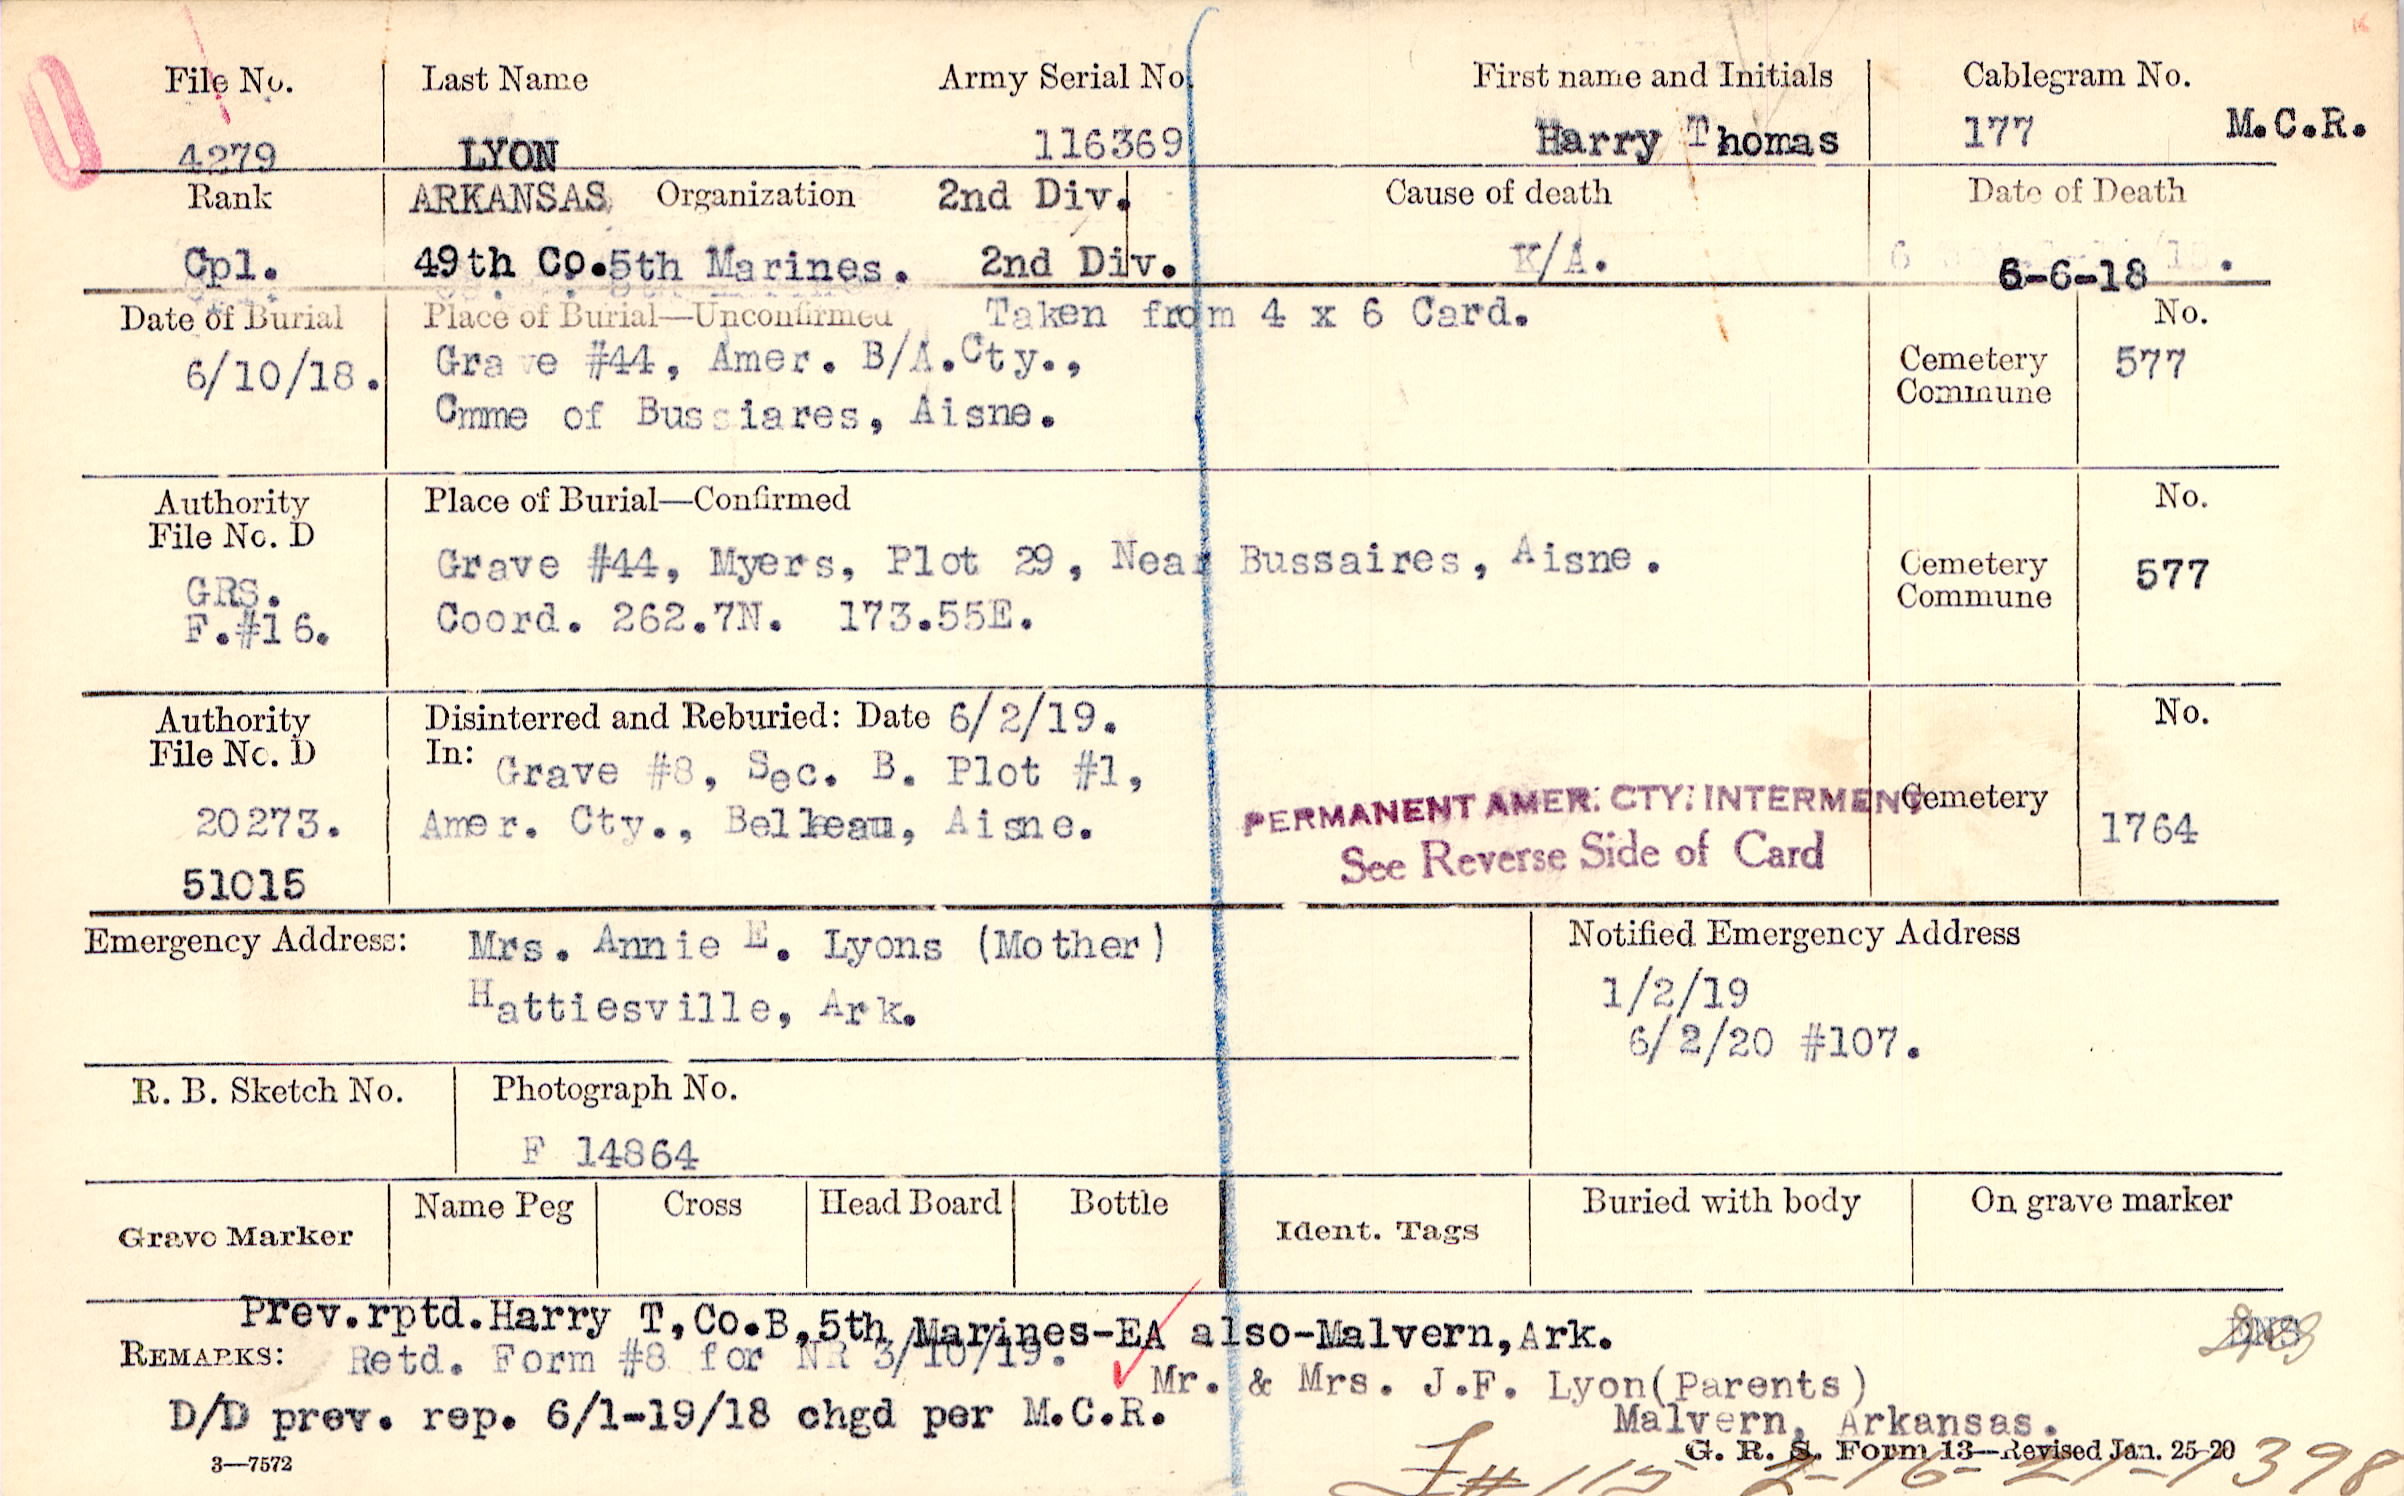 File No. Last Name Army Serial No. First name and Initials Cablegram No.
4279 LYON 116369 Harry Thomas 177 M.C.R.
Rank ARKANSAS Organization 2nd Div. Cause of death Date of Death
Cpl. 49th Co.5th Marines. 2nd Div. K/A. 6-6-18
Date of Burial Place of Burial—Unconfirmed Taken from 4 x 6 Card. No.
6/10/18. Grave #44, Amer. B/A.Cty., Cemetery 577
Cmme of Bussiares, Aisne. Commune
Authority Place of Burial—Confirmed No.
File No. D
Grave #44, Myers, Plot 29, Near Bussaires, Aisne. Cemetery 577
GRS. Commune
F.#16. Coord. 262.7N. 173.55E.
Authority Disinterred and Reburied: Date 6/2/19. No.
File No. D In: Grave #8, Sec. B. Plot #1,
PERMANENT AMER. CTY. INTERMENT Cemetery
20273. Amer. Cty., Belleau, Aisne. 1764
See Reverse Side of Card
51015
Emergency Address: Mrs. Annie E. Lyons (Mother) Notified Emergency Address
Hattiesville, Ark. 1/2/19
6/2/20 #107.
R. B. Sketch No. Photograph No.
F 14864
Grave Marker Name Peg Cross Head Board Bottle Ident. Tags Buried with body On grave marker
Prev.rptd.Harry T,Co.B,5th Marines-EA also-Malvern,Ark.
REMARKS: Retd. Form #8 for NR 3/10/19.
Mr. & Mrs. J.F. Lyon(Parents)
D/D prev. rep. 6/1-19/18 chgd per M.C.R.
Malvern, Arkansas.
3—7572 G. R. S. Form 13—Revised Jan. 25-20
#115 2-16-21-1398